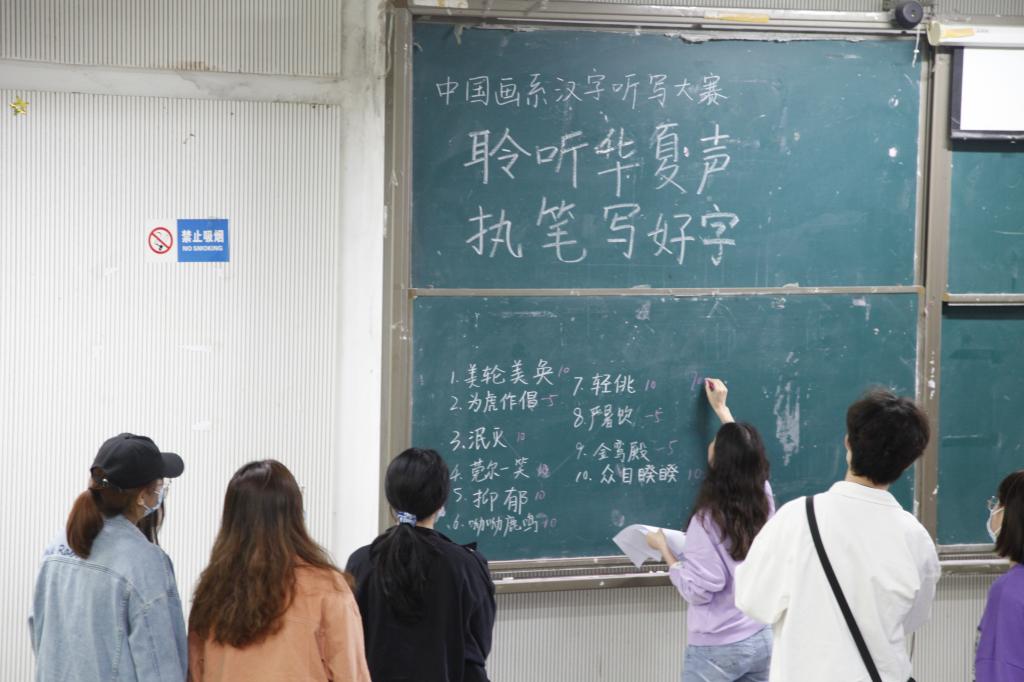 中国画系汉字听写大赛
聆听华夏声
执笔写好字
禁止吸烟
NO SMOKING
1. 美轮美奂 10
2. 为虎作倡 -5
3. 泯灭 10
4. 莞尔一笑 10
5. 抑郁 10
6. 呦呦鹿鸣 10
7. 轻佻 10
8. 严暑饮 -5
9. 金鸾殿 -5
10. 众目睽睽 10